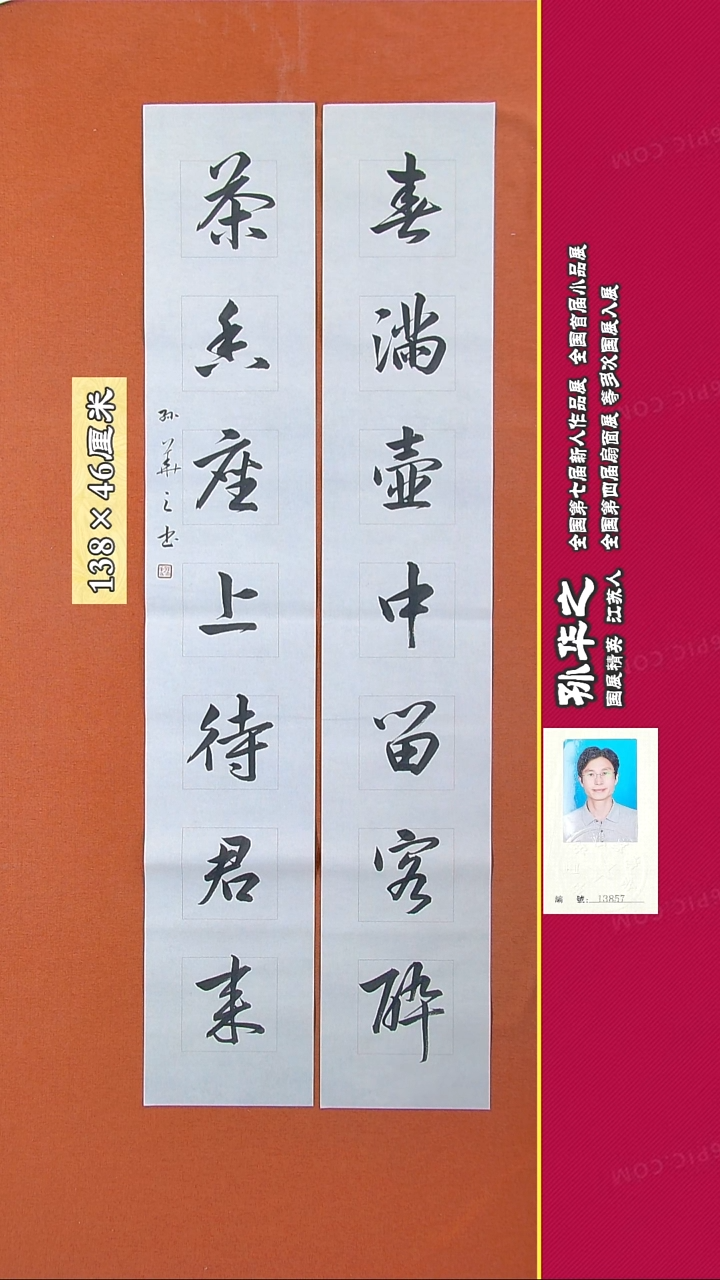 春满壶中留客醉
茶香座上待君来
孙华之书
138×46厘米
全国第七届新人作品展 全国首届小品展
全国第四届扇面展 等多次国展入展
孙华之
国展精英 江苏人
編 號: 13857